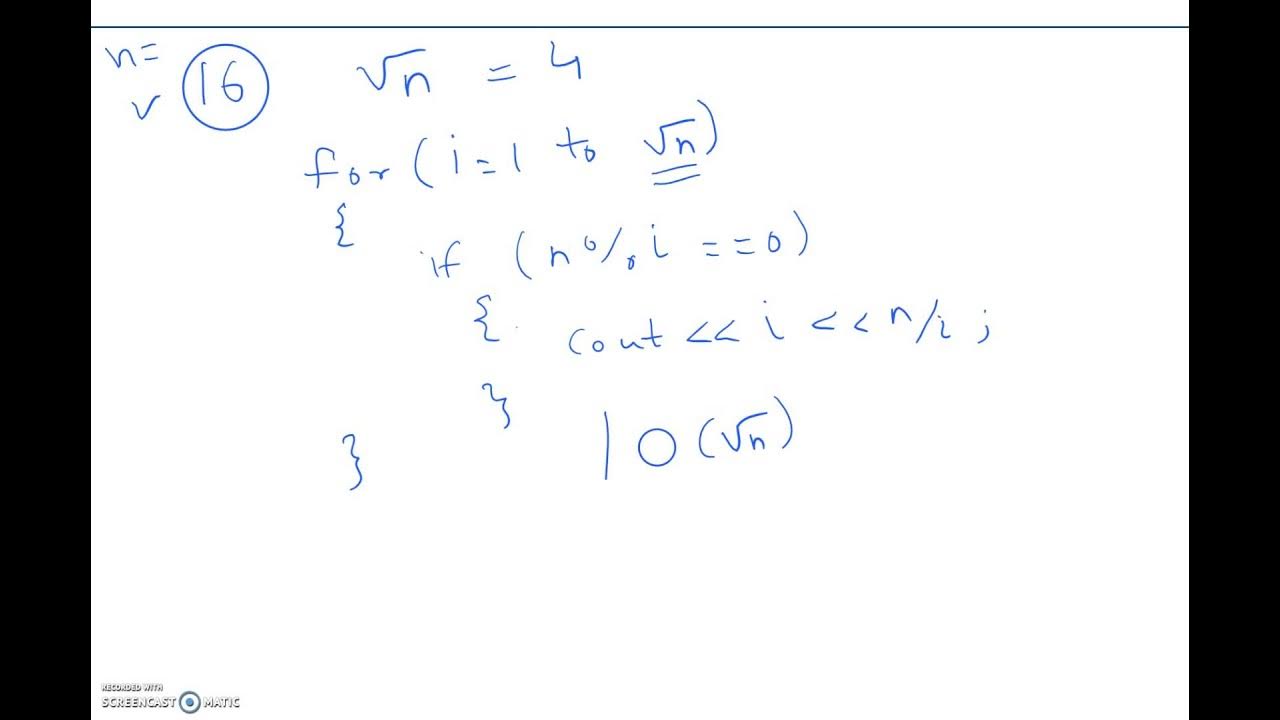 n= 16 √n = 4
√
for (i=1 to √n)
{
if (n%i ==0)
{
cout << i << n/i ;
}
| O(√n)
}
RECORDED WITH
SCREENCAST MATIC